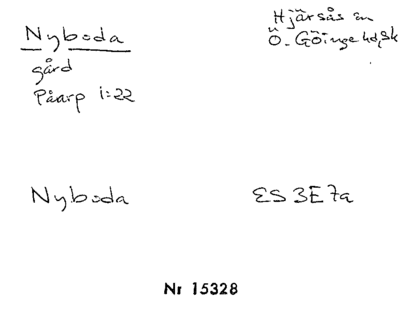 Nyboda
Hjärsås sn
Ö. Göinge hd, Sk
gård
Påarp 1:22
Nyboda
ES 3E7a
Nr 15328